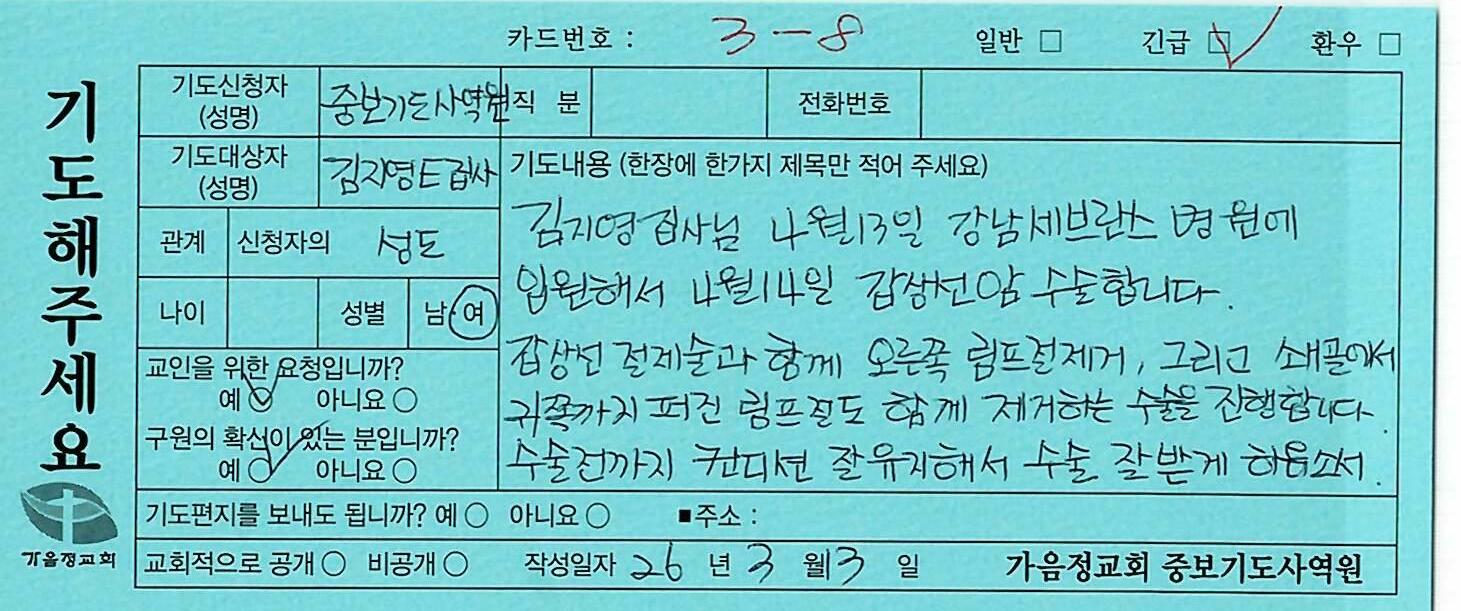 카드번호 : 3-8 일반 □ 긴급 ☑ 환우 □
기도해주세요
가음정교회
기도신청자 (성명) 중보기도사역원 직 분 전화번호
기도대상자 (성명) 김지영E집사
관계 신청자의 성도
나이 성별 남·여
교인을 위한 요청입니까?
예 ○ 아니요 ○
구원의 확신이 있는 분입니까?
예 ○ 아니요 ○
기도내용 (한장에 한가지 제목만 적어 주세요)
김지영집사님 4월13일 강남세브란스 병원에
입원해서 4월14일 갑상선암 수술합니다.
갑상선 절제술과 함께 오른쪽 림프절제거, 그리고 쇄골에서
귀쪽까지 퍼진 림프절도 함께 제거하는 수술을 진행합니다.
수술전까지 컨디션 잘유지해서 수술 잘받게 하옵소서.
기도편지를 보내도 됩니까? 예 ○ 아니요 ○ ■주소 :
교회적으로 공개 ○ 비공개 ○ 작성일자 26 년 3 월 3 일 가음정교회 중보기도사역원